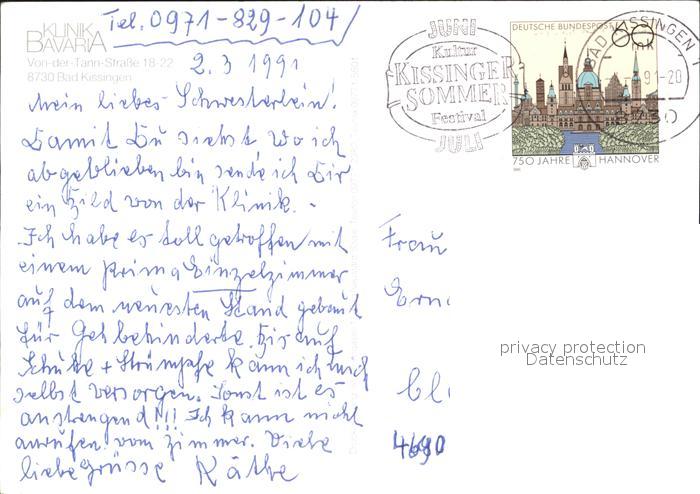 Tel. 0971-829-104/
KLINIK
BAVARIA
Von-der-Tann-Straße 18-22
8730 Bad Kissingen
2.3 1991
Mein liebes Schwesterlein!
Damit Du siehst wo ich
abgeblieben bin sende ich Dir
ein Bild von der Klinik. -
Ich habe es toll getroffen mit
einem prima Einzelzimmer
auf dem neuesten Stand gebaut
für Gehbehinderte. Bis auf
Schuhe + Strümpfe kann ich mich
selbst versorgen. Sonst ist es
anstrengend!!! Ich kann nicht
anrufen vom Zimmer. Viele
liebe Grüsse Käthe
JUNI
Kultur
KISSINGER
SOMMER
Festival
JULI
DEUTSCHE BUNDESPOST
60
BAD KISSINGEN
91-20
8730
750 JAHRE HANNOVER
Frau
Erna
privacy protection
Datenschutz
4690